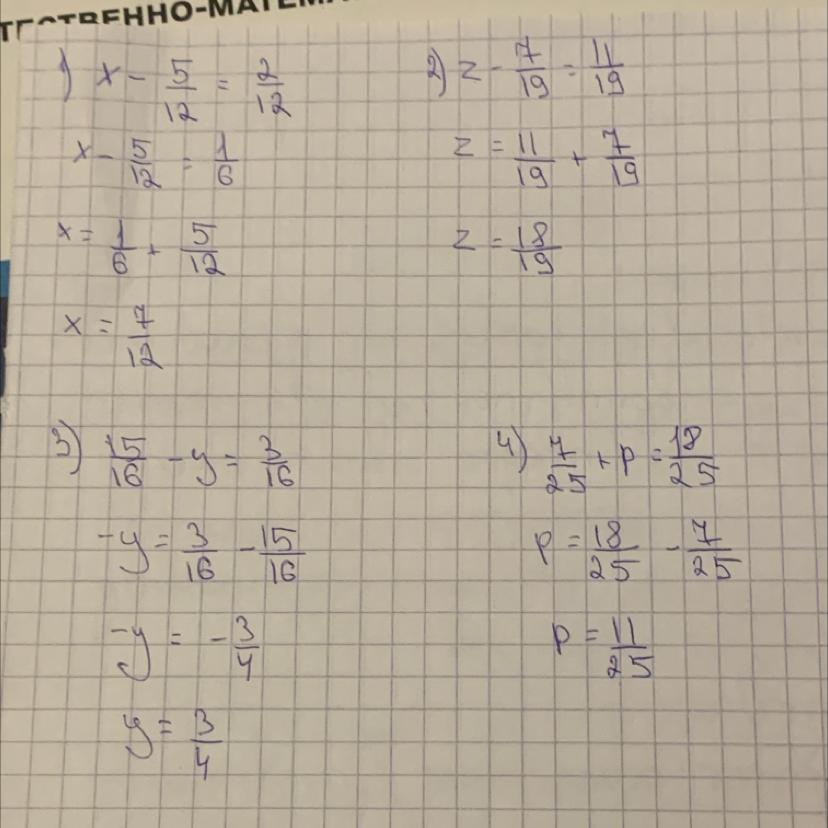 ТЕСТВЕННО-МАТЕМА
1) x - 5/12 = 2/12
x - 5/12 = 1/6
x = 1/6 + 5/12
x = 7/12
2) z - 7/19 = 11/19
z = 11/19 + 7/19
z = 18/19
3) 15/16 - y = 3/16
-y = 3/16 - 15/16
-y = -3/4
y = 3/4
4) 7/25 + p = 18/25
p = 18/25 - 7/25
p = 11/25